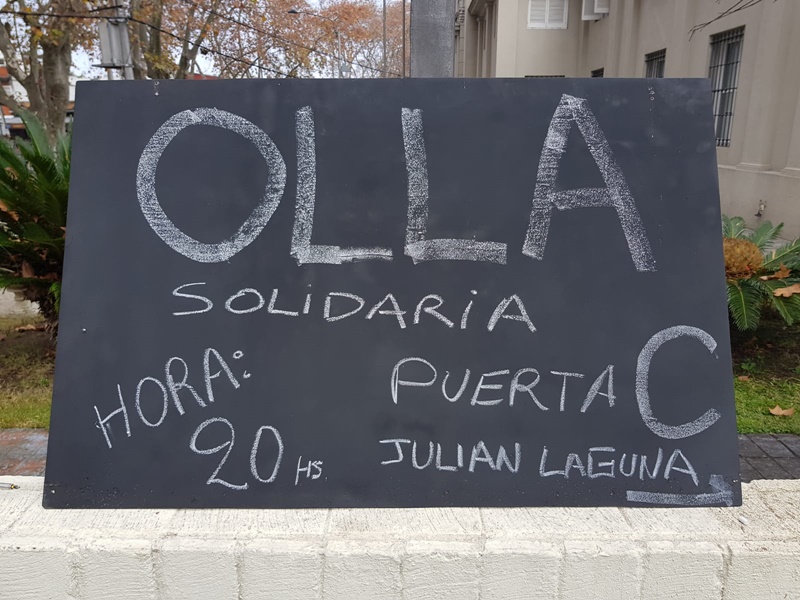 OLLA
SOLIDARIA
HORA:
20 HS
PUERTA C
JULIAN LAGUNA